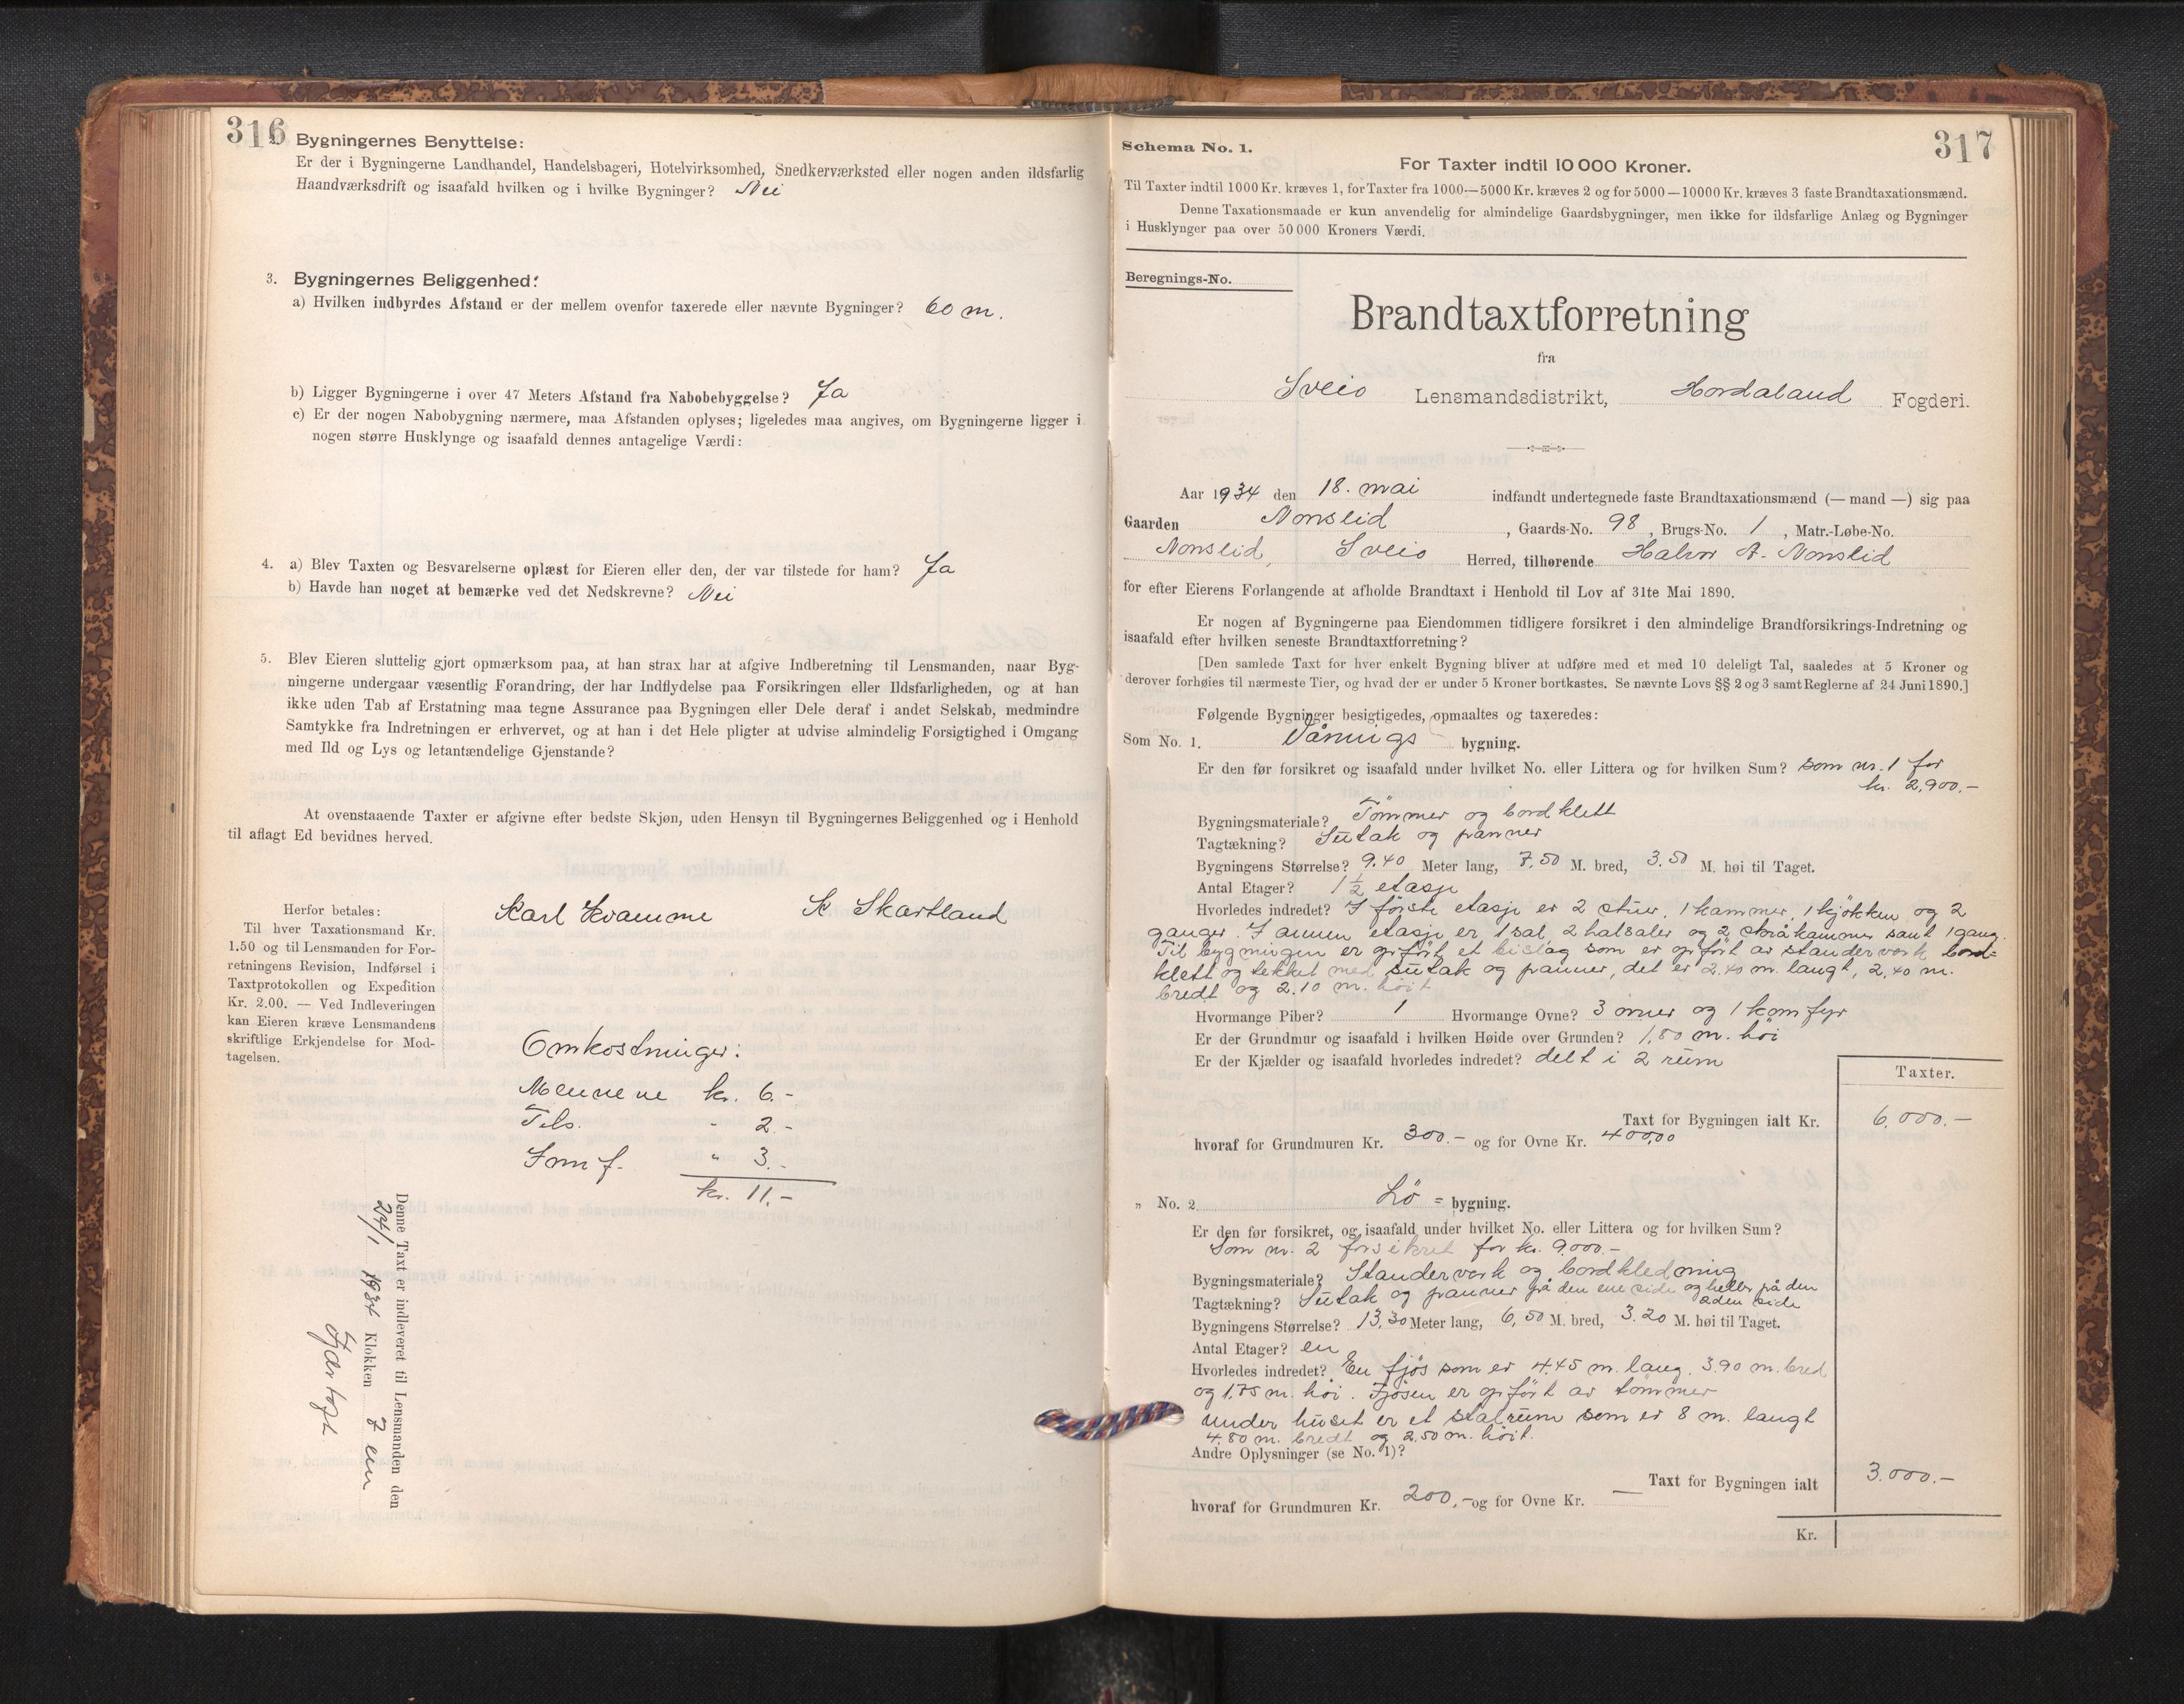 316
Bygningernes Benyttelse:
Er der i Bygningerne Landhandel, Handelsbageri, Hotelvirksomhed, Snedkerværksted eller nogen anden ildsfarlig
Haandværksdrift og isaafald hvilken og i hvilke Bygninger? Nei
3. Bygningernes Beliggenhed:
a) Hvilken indbyrdes Afstand er der mellem ovenfor taxerede eller nævnte Bygninger? 60 m.
b) Ligger Bygningerne i over 47 Meters Afstand fra Nabobebyggelse? Ja
c) Er der nogen Nabobygning nærmere, maa Afstanden oplyses; ligeledes maa angives, om Bygningerne ligger i
nogen større Husklynge og isaafald dennes antagelige Værdi:
4. a) Blev Taxten og Besvarelserne oplæst for Eieren eller den, der var tilstede for ham? Ja
b) Havde han noget at bemærke ved det Nedskrevne? Nei
5. Blev Eieren sluttelig gjort opmærksom paa, at han strax har at afgive Indberetning til Lensmanden, naar Byg-
ningerne undergaar væsentlig Forandring, der har Indflydelse paa Forsikringen eller Ildsfarligheden, og at han
ikke uden Tab af Erstatning maa tegne Assurance paa Bygningen eller Dele deraf i andet Selskab, medmindre
Samtykke fra Indretningen er erhvervet, og at han i det Hele pligter at udvise almindelig Forsigtighed i Omgang
med Ild og Lys og letantændelige Gjenstande?
At ovenstaaende Taxter er afgivne efter bedste Skjøn, uden Hensyn til Bygningernes Beliggenhed og i Henhold
til aflagt Ed bevidnes herved.
Herfor betales:
Til hver Taxationsmand Kr.
1.50 og til Lensmanden for For-
retningens Revision, Indførsel i
Taxtprotokollen og Expedition
Kr. 2.00. — Ved Indleveringen
kan Eieren kræve Lensmandens
skriftlige Erkjendelse for Mod-
tagelsen.
Karl Kvamme K Skartland
Omkostninger:
Mennene kr. 6.-
Tils. - 2.-
Innf. " 3.-
kr. 11.-
Denne Taxt er indleveret til Lensmanden den
24/1 1934 Klokken 7 em
317
Schema No. 1.
For Taxter indtil 10 000 Kroner.
Til Taxter indtil 1000 Kr. kræves 1, for Taxter fra 1000—5000 Kr. kræves 2 og for 5000—10000 Kr. kræves 3 faste Brandtaxationsmænd.
Denne Taxationsmaade er kun anvendelig for almindelige Gaardsbygninger, men ikke for ildsfarlige Anlæg og Bygninger
i Husklynger paa over 50 000 Kroners Værdi.
Beregnings-No.
Brandtaxtforretning
fra
Sveio Lensmandsdistrikt, Hordaland Fogderi.
Aar 1934 den 18. mai indfandt undertegnede faste Brandtaxationsmænd (— mand —) sig paa
Gaarden Nonslid, Gaards-No. 98, Brugs-No. 1, Matr.-Løbe-No.
Nonslid, Sveio Herred, tilhørende Halvor A. Nonslid
for efter Eierens Forlangende at afholde Brandtaxt i Henhold til Lov af 31te Mai 1890.
Er nogen af Bygningerne paa Eiendommen tidligere forsikret i den almindelige Brandforsikrings-Indretning og
isaafald efter hvilken seneste Brandtaxtforretning?
[Den samlede Taxt for hver enkelt Bygning bliver at udføre med et med 10 deleligt Tal, saaledes at 5 Kroner og
derover forhøies til nærmeste Tier, og hvad der er under 5 Kroner bortkastes. Se nævnte Lovs §§ 2 og 3 samt Reglerne af 24 Juni 1890.]
Følgende Bygninger besigtigedes, opmaaltes og taxeredes:
Som No. 1. Vånings bygning.
Er den før forsikret og isaafald under hvilket No. eller Littera og for hvilken Sum? som nr. 1 for
kr. 2,900.-
Bygningsmateriale? Tømmer og bordklett
Tagtækning? Sutak og panner
Bygningens Størrelse? 9.40 Meter lang, 7,50 M. bred, 3.50 M. høi til Taget.
Antal Etager? 1 1/2 etasje
Hvorledes indredet? I første etasje er 2 stuer, 1 kammer, 1 kjøkken og 2
ganger. I annen etasje er 1 sal 2 halsaler og 2 skråkammer samt 1 gang.
Til bygningen er opført et bislag som er opført av standerverk bord-
klett og tekket med sutak og panner, det er 2.40 m. langt, 2,40 m.
bredt og 2.10 m. høit
Hvormange Piber? 1 Hvormange Ovne? 3 ovner og 1 komfyr
Er der Grundmur og isaafald i hvilken Høide over Grunden? 1,80 m. høi
Er der Kjælder og isaafald hvorledes indredet? delt i 2 rum
Taxter.
Taxt for Bygningen ialt Kr. 6.000.-
hvoraf for Grundmuren Kr. 300.- og for Ovne Kr. 400,00
" No. 2 Lø = bygning.
Er den før forsikret, og isaafald under hvilket No. eller Littera og for hvilken Sum?
Som nr. 2 forsikret for kr. 9.000.-
Bygningsmateriale? Standerverk og bordkledning
Tagtækning? Sutak og panner på den ene side og heller på den
2den side
Bygningens Størrelse? 13,30 Meter lang, 6,50 M. bred, 3.20 M. høi til Taget.
Antal Etager? en
Hvorledes indredet? En fjøs som er 4.45 m. lang, 3.90 m. bred
og 1.75 m. høi. Fjøsen er opført av tømmer
under huset er et stalrum som er 8 m. langt
4.80 m. bredt og 2.50 m. høit.
Andre Oplysninger (se No. 1)?
Taxt for Bygningen ialt 3.000.-
hvoraf for Grundmuren Kr. 200,- og for Ovne Kr. —
Kr.